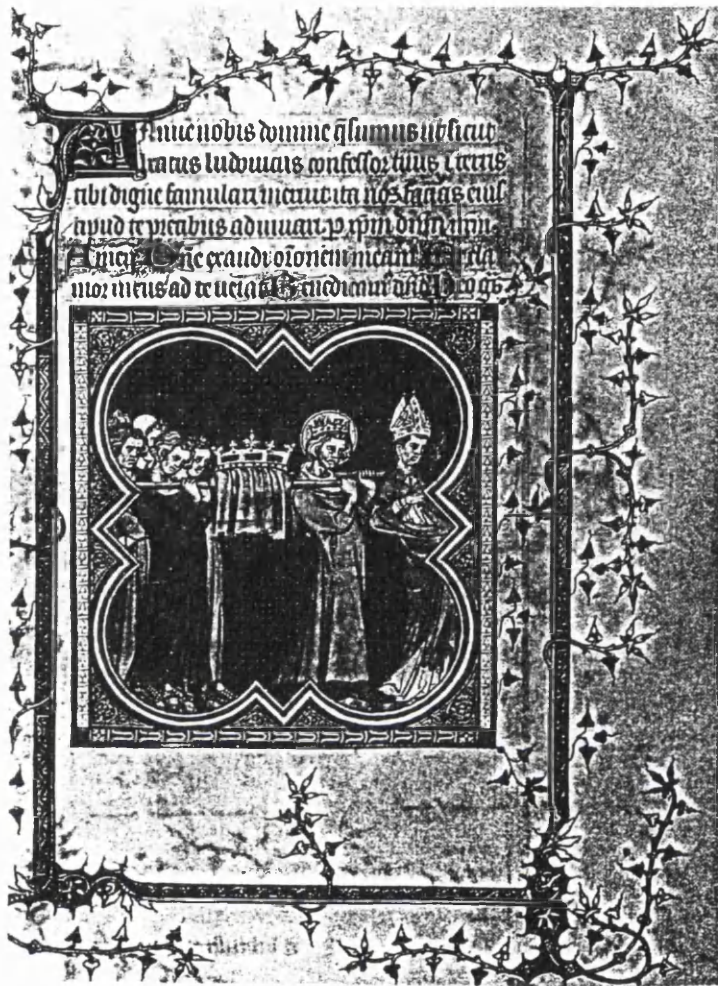 Annue nobis domine q̃sumus ut sicut
beatus ludovicus confessor tuus i terris
tibi digne famulari meruit ita nos facias eius
apud te precibus adiuvari. p xp̃m dñm nrm.
Amen. Dñe exaudi orõnem meam. Et cla
mor meus ad te veiat. Benedicam dño. Deo gr̃s